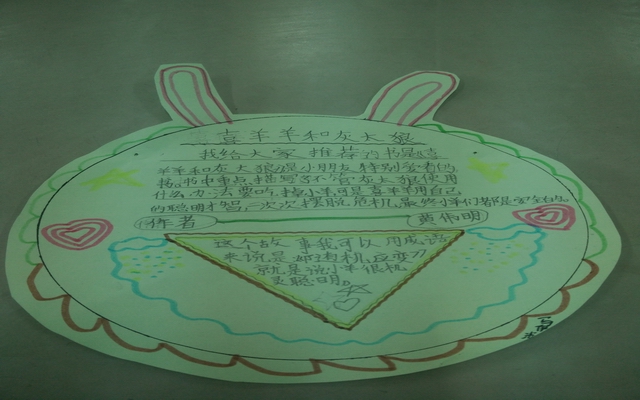 喜羊羊和灰太狼
我给大家推荐的书是喜
羊羊和灰太狼,是小朋友特别爱看的
书。书中羊 描写 不管灰太狼使用
什么办法要吃 小羊可是喜羊羊用自己
的聪明才智,一次次摆脱危机,最终小羊们都是安全的。
作者
黄伟明
这个故事我可以用成语
来说是 随机应变
就是说小羊很机
灵聪明。